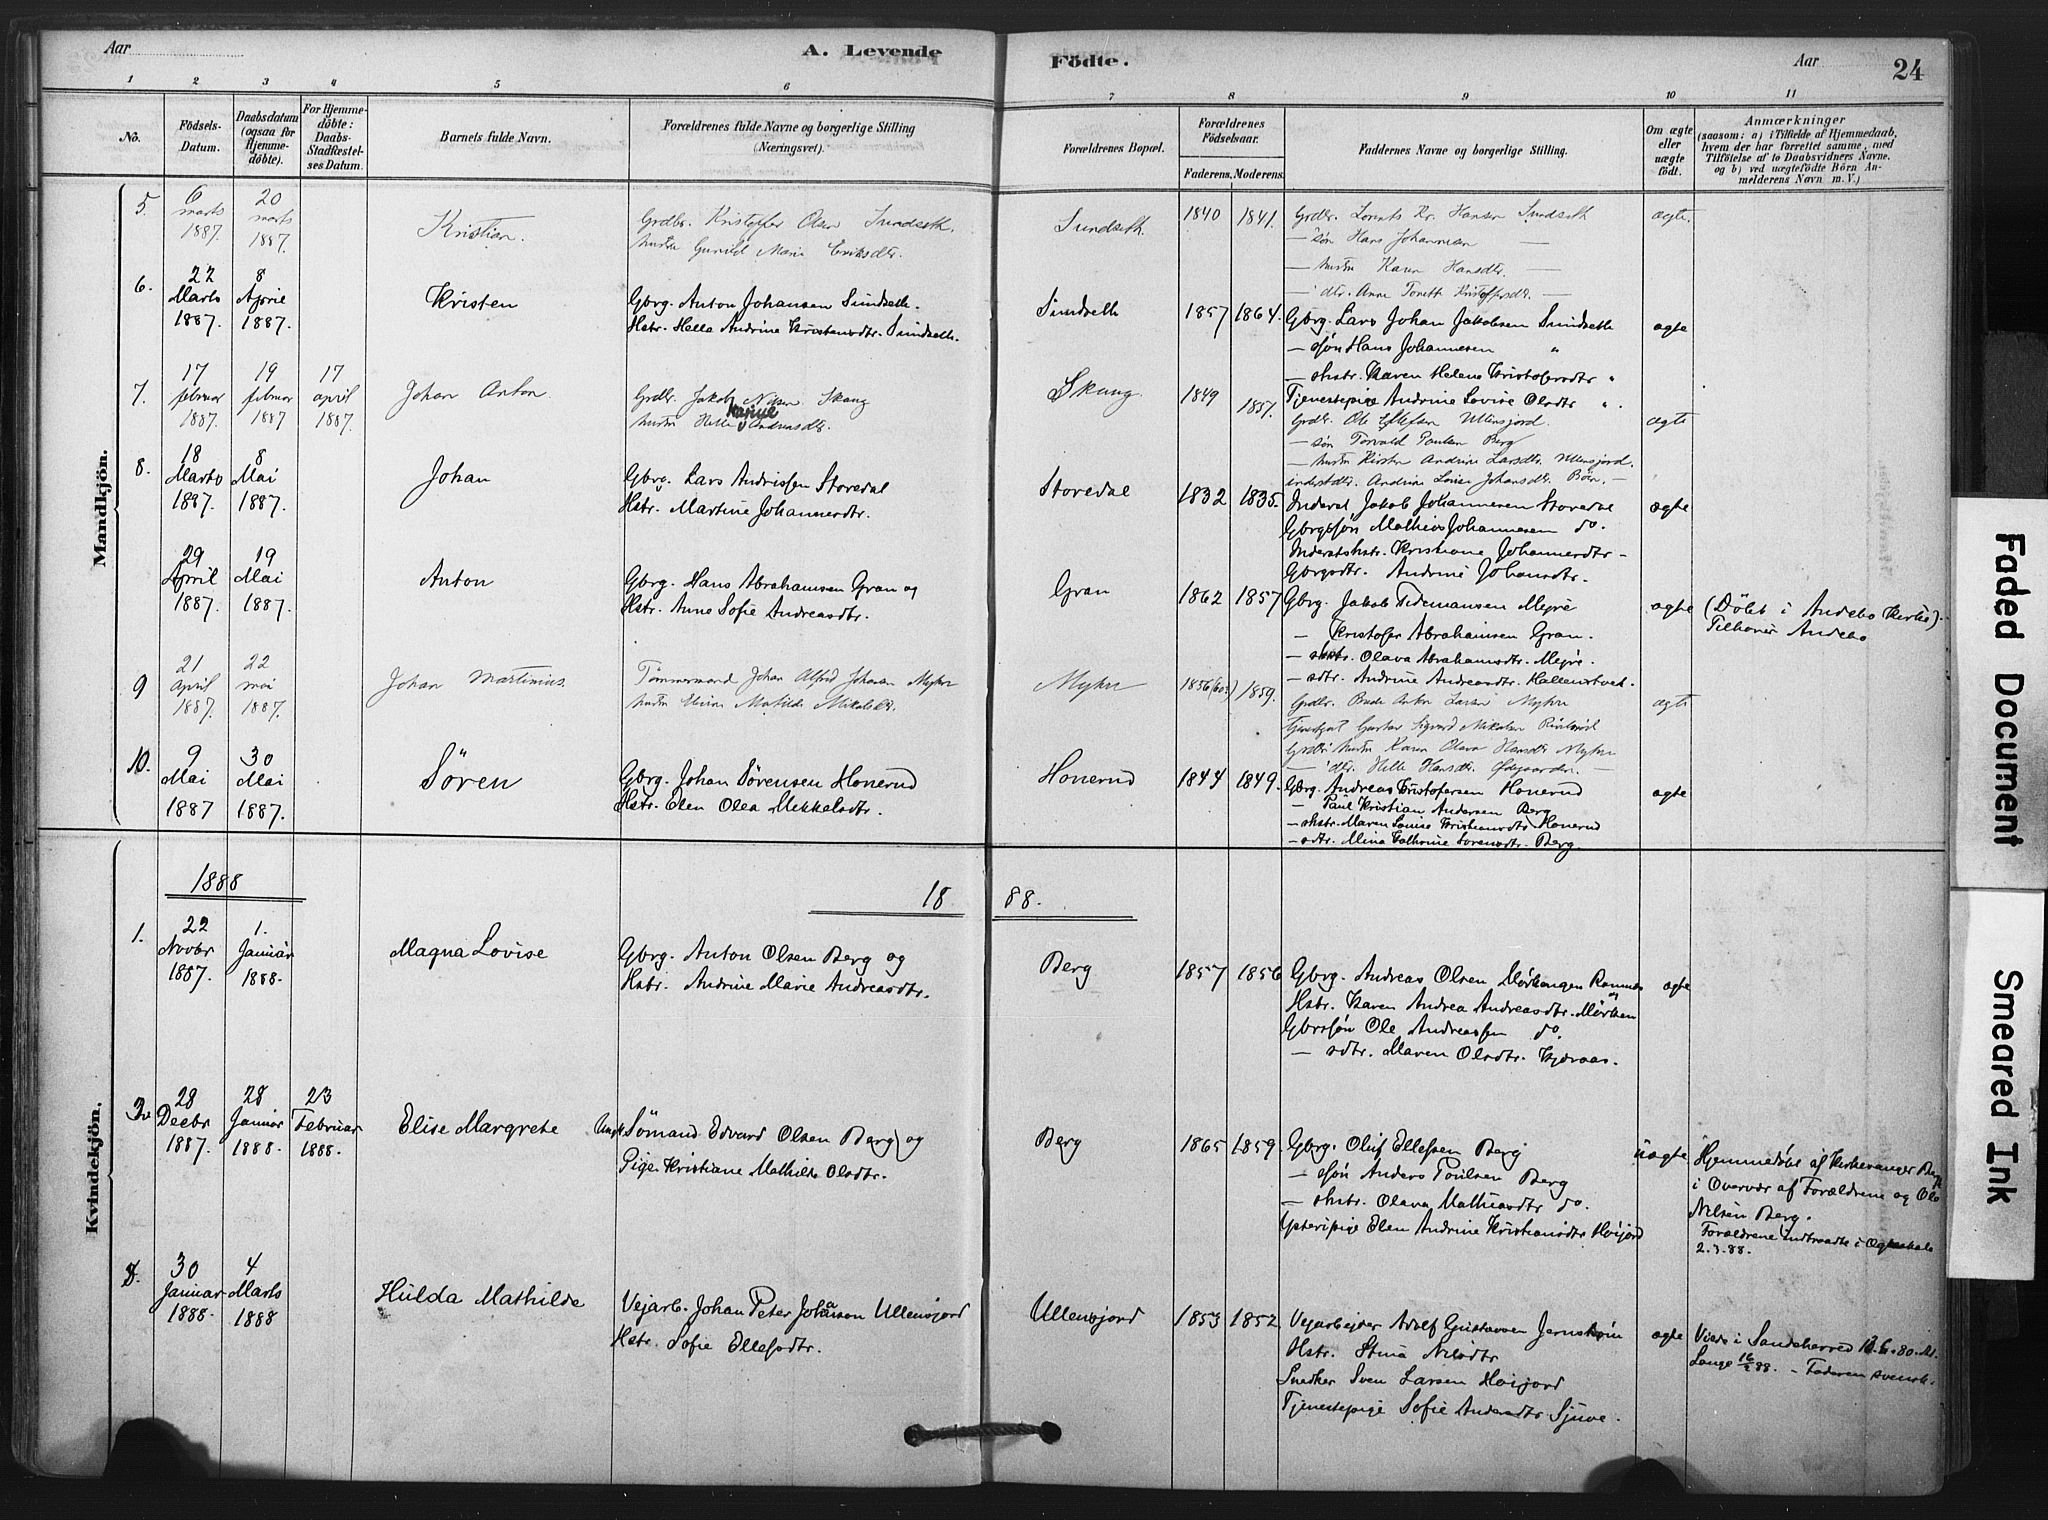 Aar
A. Levende
Födte.
Aar
24
1 2 3 4 5 6 7 8 9 10 11
No.
Födsels-Datum.
Daabsdatum (ogsaa for Hjemme-döbte).
For Hjemme-döbte: Daabs-Stadfæstel-ses Datum.
Barnets fulde Navn.
Forældrenes fulde Navne og borgerlige Stilling (Næringsvei).
Forældrenes Bopæl.
Forældrenes Födselsaar.
Faderens. Moderens.
Faddernes Navne og borgerlige Stilling.
Om ægte eller uægte födt.
Anmærkninger
(saasom: a) i Tilfælde af Hjemmedaab, hvem der har forrettet samme, med Tilföielse af to Daabsvidners Navne. og b) ved uægtefödte Börn An-melderens Navn m.V.)
Mandkjön.
5.
6 marts 1887.
20 marts 1887.
Kristian.
Grdbr. Kristoffer Olsen Sundseth.
hustru Gunild Marie Eriksdtr.
Sundseth
1840
1841.
Grdbr. Lorents Kr. Hansen Sundseth
— søn Hans Johannesen —
— hustru Karen Hansdtr. —
— dtr. Anne Torette Kristoffersdtr. —
ægte.
6.
22 Marts 1887.
8 April 1887.
Kristen
Gbrg. Anton Johansen Sundseth.
Hstr. Helle Andrine Kristensdtr. Sundseth.
Sundseth
1857
1864.
Gbrg. Lars Johan Jakobsen Sundseth
— søn Hans Johannesen "
— shstr. Karen Helene Kristofersdtr "
Tjenestepige Andrine Lovise Olsdtr ".
ægte
7.
17 februar 1887.
19 februar 1887
17 april 1887.
Johan Anton
Grdbr. Jakob Nilsen Skaug
hustru Helle Karine Andreasdtr.
Skaug.
1849
1857.
Grdbr. Ole Ellefsen Ullensjord.
— søn Torvald Paulsen Berg
— hustru Kirsten Andrine Larsdtr. Ullensjord.
inderstdtr. Andrine Lovise Johansdtr. Börn. —
ægte
8.
18 Marts 1887.
8 Mai 1887.
Johan
Gbrg. Lars Andrissen Storedal
Hstr. Martine Johannesdtr.
Storedal
1832
1835.
Inderst Jakob Johannesen Storedal
Gbrgsøn Mathias Johannesen do.
Inderstshstr. Kristiane Johannesdtr —
Gbrgsdtr. Andrine Johansdtr.
ægte
29 April 1887.
19 Mai 1887.
Anton
Gbrg. Hans Abrahamsen Gran og
Hstr. Anne Sofie Andreasdtr.
Gran
1862
1857
Gbrg. Jakob Tidemansen Mejre
— Kristofer Abrahamsen Gran.
— shstr. Olava Abrahamsdtr. Mejre.
— sdtr. Andrine Andreasdtr. Hallenstvet.
ægte
(Döbt i Andebo Kirke).
Tilhører Andebo
9
21 april 1887.
22 mai 1887.
Johan Martinius.
Tømmermand Johan Alfred Johansen Myhre
hustru Elvine Matilde Mikalsdtr.
Myhre
1859.
Grdbr. Anton Larsen Myhre
Grdbr hustru Karen Olava Hansdtr Myhre
— dtr. Helle Hansdtr.
ægte
10.
9 Mai 1887
30 Mai 1887.
Sören
Gbrg. Johan Sörensen Honerud
Hstr. Elen Olea Mikkelsdtr.
Honerud
1844
1849.
Gbrg. Andreas Kristofersen Honerud
— Paul Kristian Andersen Berg
— shstr. Maren Louise Kristiansdtr Honerud
— sdtr. Mina Kathrine Sorensdtr. Berg.
ægte
Kvindekjön.
1888
18 88.
1.
22 Novbr 1887.
1. Januar 1888.
Magna Lovise
Gbrg. Anton Olsen Berg og
Hstr. Andrine Marie Andreasdtr.
Berg
1857
1856
Gbrg. Andreas Olsen Mørkengen Ramnes
Hstr. Karen Andrea Andreasdtr. Mørken
Gbrssøn Ole Andreassen do.
— sdtr. Maren Olsdtr. Kjæraas.
ægte
28 Decbr 1887.
28 Januar 1888.
23 Februar 1888.
Elise Margrete
(Ungk. Sömand Edvard Olsen Berg) og
Pige Kristiane Mathilde Olsdtr.
Berg
1865
1859
Gbrg. Oluf Ellefsen Berg
— søn Anders Poulsen Berg
— shstr. Olava Mathiasdtr do.
Ysteripige Elen Andrine Kristiansdtr Hoijord
uægte
Hjemmedöbt af Kirkesanger Berg
i Overvær af Forældrene og Ole
Nilsen Berg.
Forældrene indtraadte i Ægteskab
2.3.88.
30 Januar 1888.
4 Marts 1888
Hulda Mathilde
Vejarb. Johan Peter Johanson Ullensjord
Hstr. Sofie Ellefsdtr.
Ullensjord
1853
1852.
Vejarbejder Adolf Gustavsen
Hstr. Stina Nilsdtr
Snedker Sven Larsen Hoijord
Tjenestepige Sofie Andersdtr Sjuve.
ægte
Viede i Sandeherred 80.
Lange 16/2 88. — Faderen svensk.
Faded Document
Smeared Ink